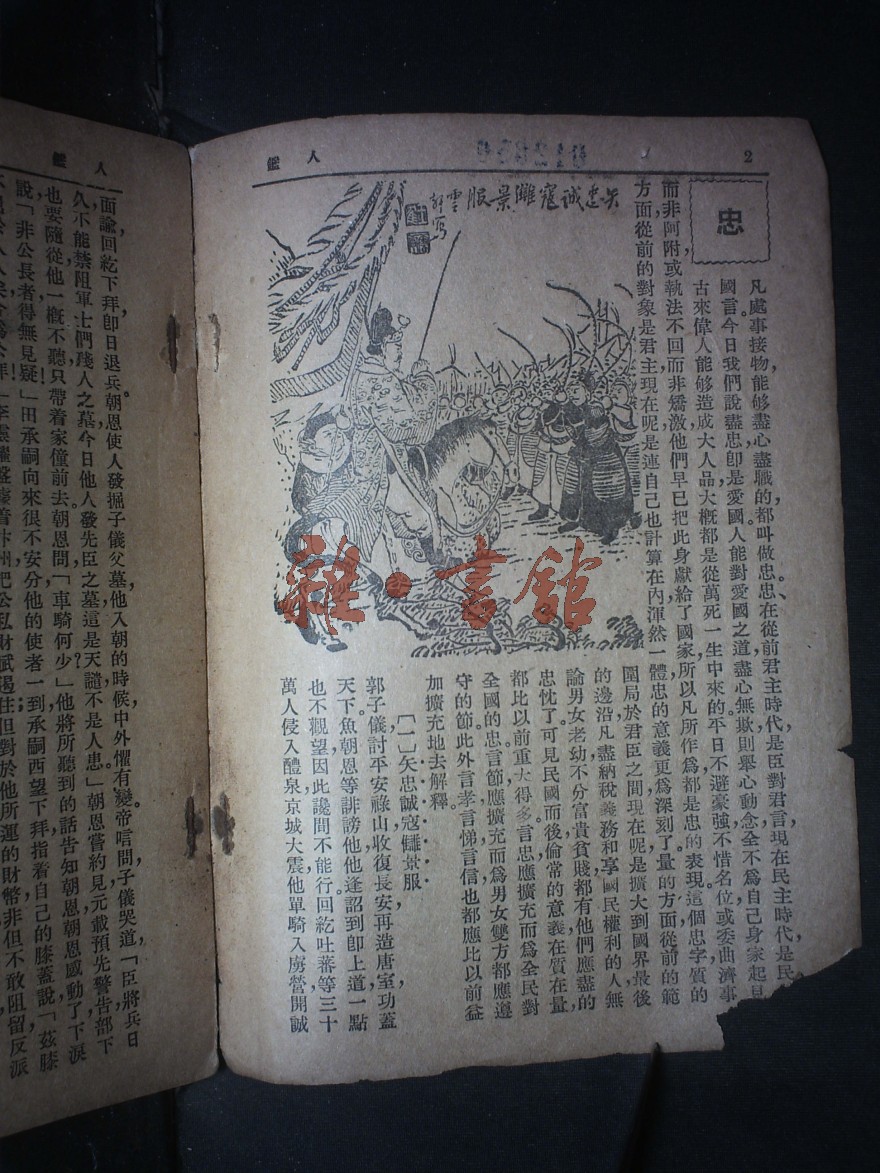 2
人鑑
忠
凡處事接物，能够盡心盡職的，都叫做忠。忠在從前君主時代，是臣對君言，現在民主時代，是民
國言。今日我們說盡忠，卽是愛國。人能對愛國之道，盡心無欺，則舉心動念，全不爲自己身家起見
古來偉人，能够造成大人品，大概都是從萬死一生中來的。平日不避豪強，不惜名位，或委曲濟事，
而非阿附，或執法不回，而非矯激，他們早已把此身獻給了國家，所以凡所作爲，都是忠的表現。這個忠字，質的
方面，從前的對象是君主，現在呢，是連自己也計算在內，渾然一體，忠的意義，更爲深刻了。量的方面，從前的範
圍，局於君臣之間，現在呢，是擴大到國界最後
的邊沿，凡盡納稅義務和享國民權利的人，無
論男女老幼，不分富貴貧賤，都有他們應盡的
忠忱了。可見民國而後，倫常的意義，在質在量，
都比以前重大得多，言忠應擴充而爲全民對
全國的忠，言節應擴充而爲男女雙方都應遵
守的節，此外言孝言悌言信，也都應比以前益
加擴充地去解釋。
〔一〕矢忠誠寇讎景服
郭子儀討平安祿山，收復長安，再造唐室，功蓋
天下，魚朝恩等誹謗他，他逢詔到，卽上道，一點
也不觀望，因此讒間不能行。回紇吐蕃等三十
萬人侵入醴泉，京城大震，他單騎入虜營，開誠
矢忠誠寇讎景服
雲軒寫
雜·書館
人鑑
面諭，回紇下拜，卽日退兵。朝恩使人發掘子儀父墓，他入朝的時候，中外懼有變，帝唁問，子儀哭道：「臣將兵日
久，不能禁阻軍士們殘人之墓，今日他人發先臣之墓，這是天譴，不是人患。」朝恩嘗約見，元載預先警告，部下
也要隨從，他一概不聽，只帶着家僮前去，朝恩問：「車騎何少？」他將所聽到的話告知朝恩，朝恩感動了下淚
說：「非公長者，得無見疑！」田承嗣向來很不安分，他的使者一到，承嗣西望下拜，指着自己的膝蓋說：「茲膝
李靈耀盤據着汴州，把公私財賦遏住，但對於他所運的財幣，非但不敢阻留，反派